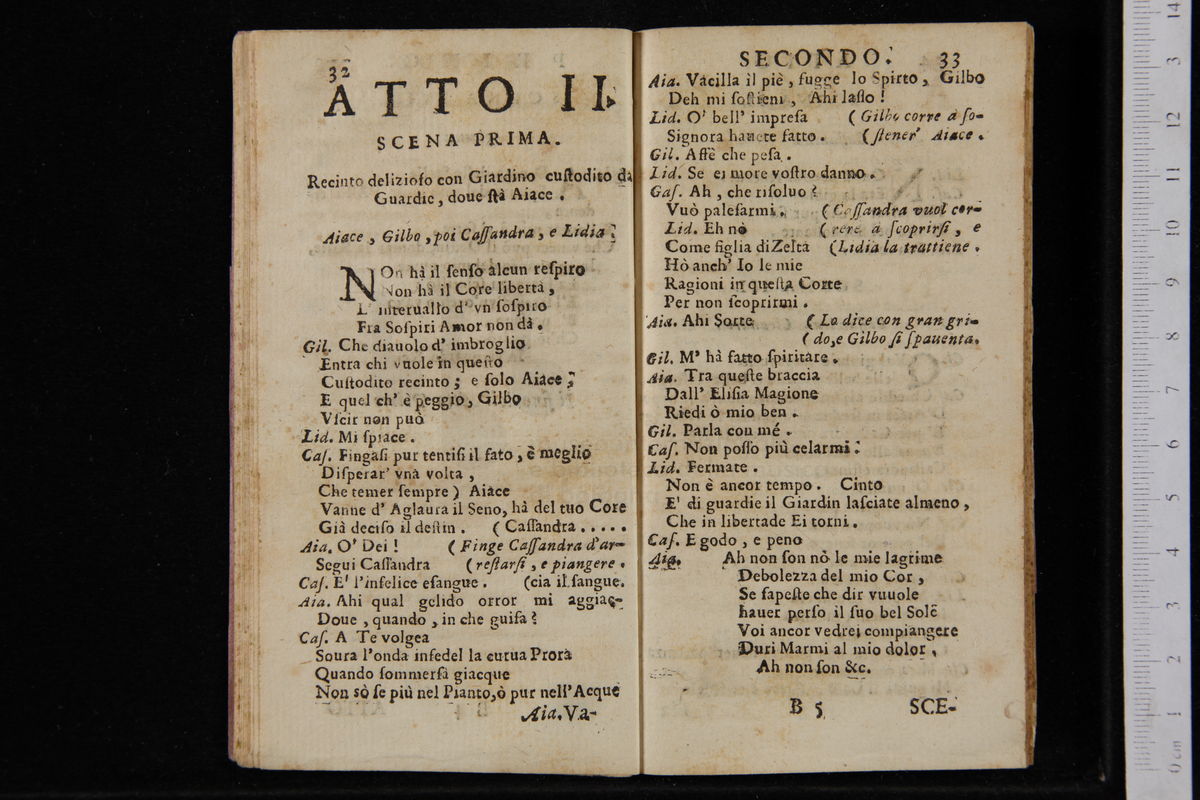 32
ATTO II.
SCENA PRIMA.
Recinto delizioſo con Giardino cuſtodito da
Guardie, doue ſtà Aiace.
Aiace, Gilbo, poi Caſſandra, e Lidia.
NOn hà il ſenſo alcun reſpiro
Non hà il Core libertà,
L' interuallo d' vn ſoſpiro
Fra Soſpiri Amor non dà.
Gil. Che diauolo d' imbroglio
Entra chi vuole in queſto
Cuſtodito recinto; e ſolo Aiace,
E quel ch' è peggio, Gilbo
Vſcir non può
Lid. Mi ſpiace.
Caſ. Fingaſi pur tentiſi il fato, è meglio
Diſperar' vna volta,
Che temer ſempre) Aiace
Vanne d' Aglaura il Seno, hà del tuo Core
Già deciſo il deſtin. (Caſſandra.....
Aia. O' Dei! (Finge Caſſandra d'ar-
Segui Caſſandra (reſtarſi, e piangere.
Caſ. E' l'infelice eſangue. (cia il ſangue.
Aia. Ahi qual gelido orror mi aggiac-
Doue, quando, in che guiſa?
Caſ. A Te volgea
Soura l'onda infedel la curua Prora
Quando ſommerſa giacque
Non sò ſe più nel Pianto, ò pur nell'Acque
Aia. Va-
SECONDO. 33
Aia. Vacilla il piè, fugge lo Spirto, Gilbo
Deh mi ſoſtieni, Ahi laſſo!
Lid. O' bell' impreſa (Gilbo corre à ſo-
Signora hauete fatto. (ſtener' Aiace.
Gil. Affè che peſa.
Lid. Se ei more voſtro danno.
Caſ. Ah, che riſoluo?
Vuò paleſarmi. (Caſſandra vuol cor-
Lid. Eh nò (rere à ſcoprirſi, e
Come figlia di Zelta (Lidia la trattiene.
Hò anch' Io le mie
Ragioni in queſta Corte
Per non ſcoprirmi.
Aia. Ahi Sorte (Lo dice con gran gri-
(do, e Gilbo ſi ſpauenta.
Gil. M' hà fatto ſpiritare.
Aia. Tra queſte braccia
Dall' Eliſia Magione
Riedi ò mio ben.
Gil. Parla con mé.
Caſ. Non poſſo più celarmi.
Lid. Fermate.
Non è ancor tempo. Cinto
E' di guardie il Giardin laſciate almeno,
Che in libertade Ei torni.
Caſ. E godo, e peno
Aia. Ah non ſon nò le mie lagrime
Debolezza del mio Cor,
Se ſapeſte che dir vuuole
hauer perſo il ſuo bel Sole
Voi ancor vedrei compiangere
Duri Marmi al mio dolor,
Ah non ſon &c.
B 5 SCE-